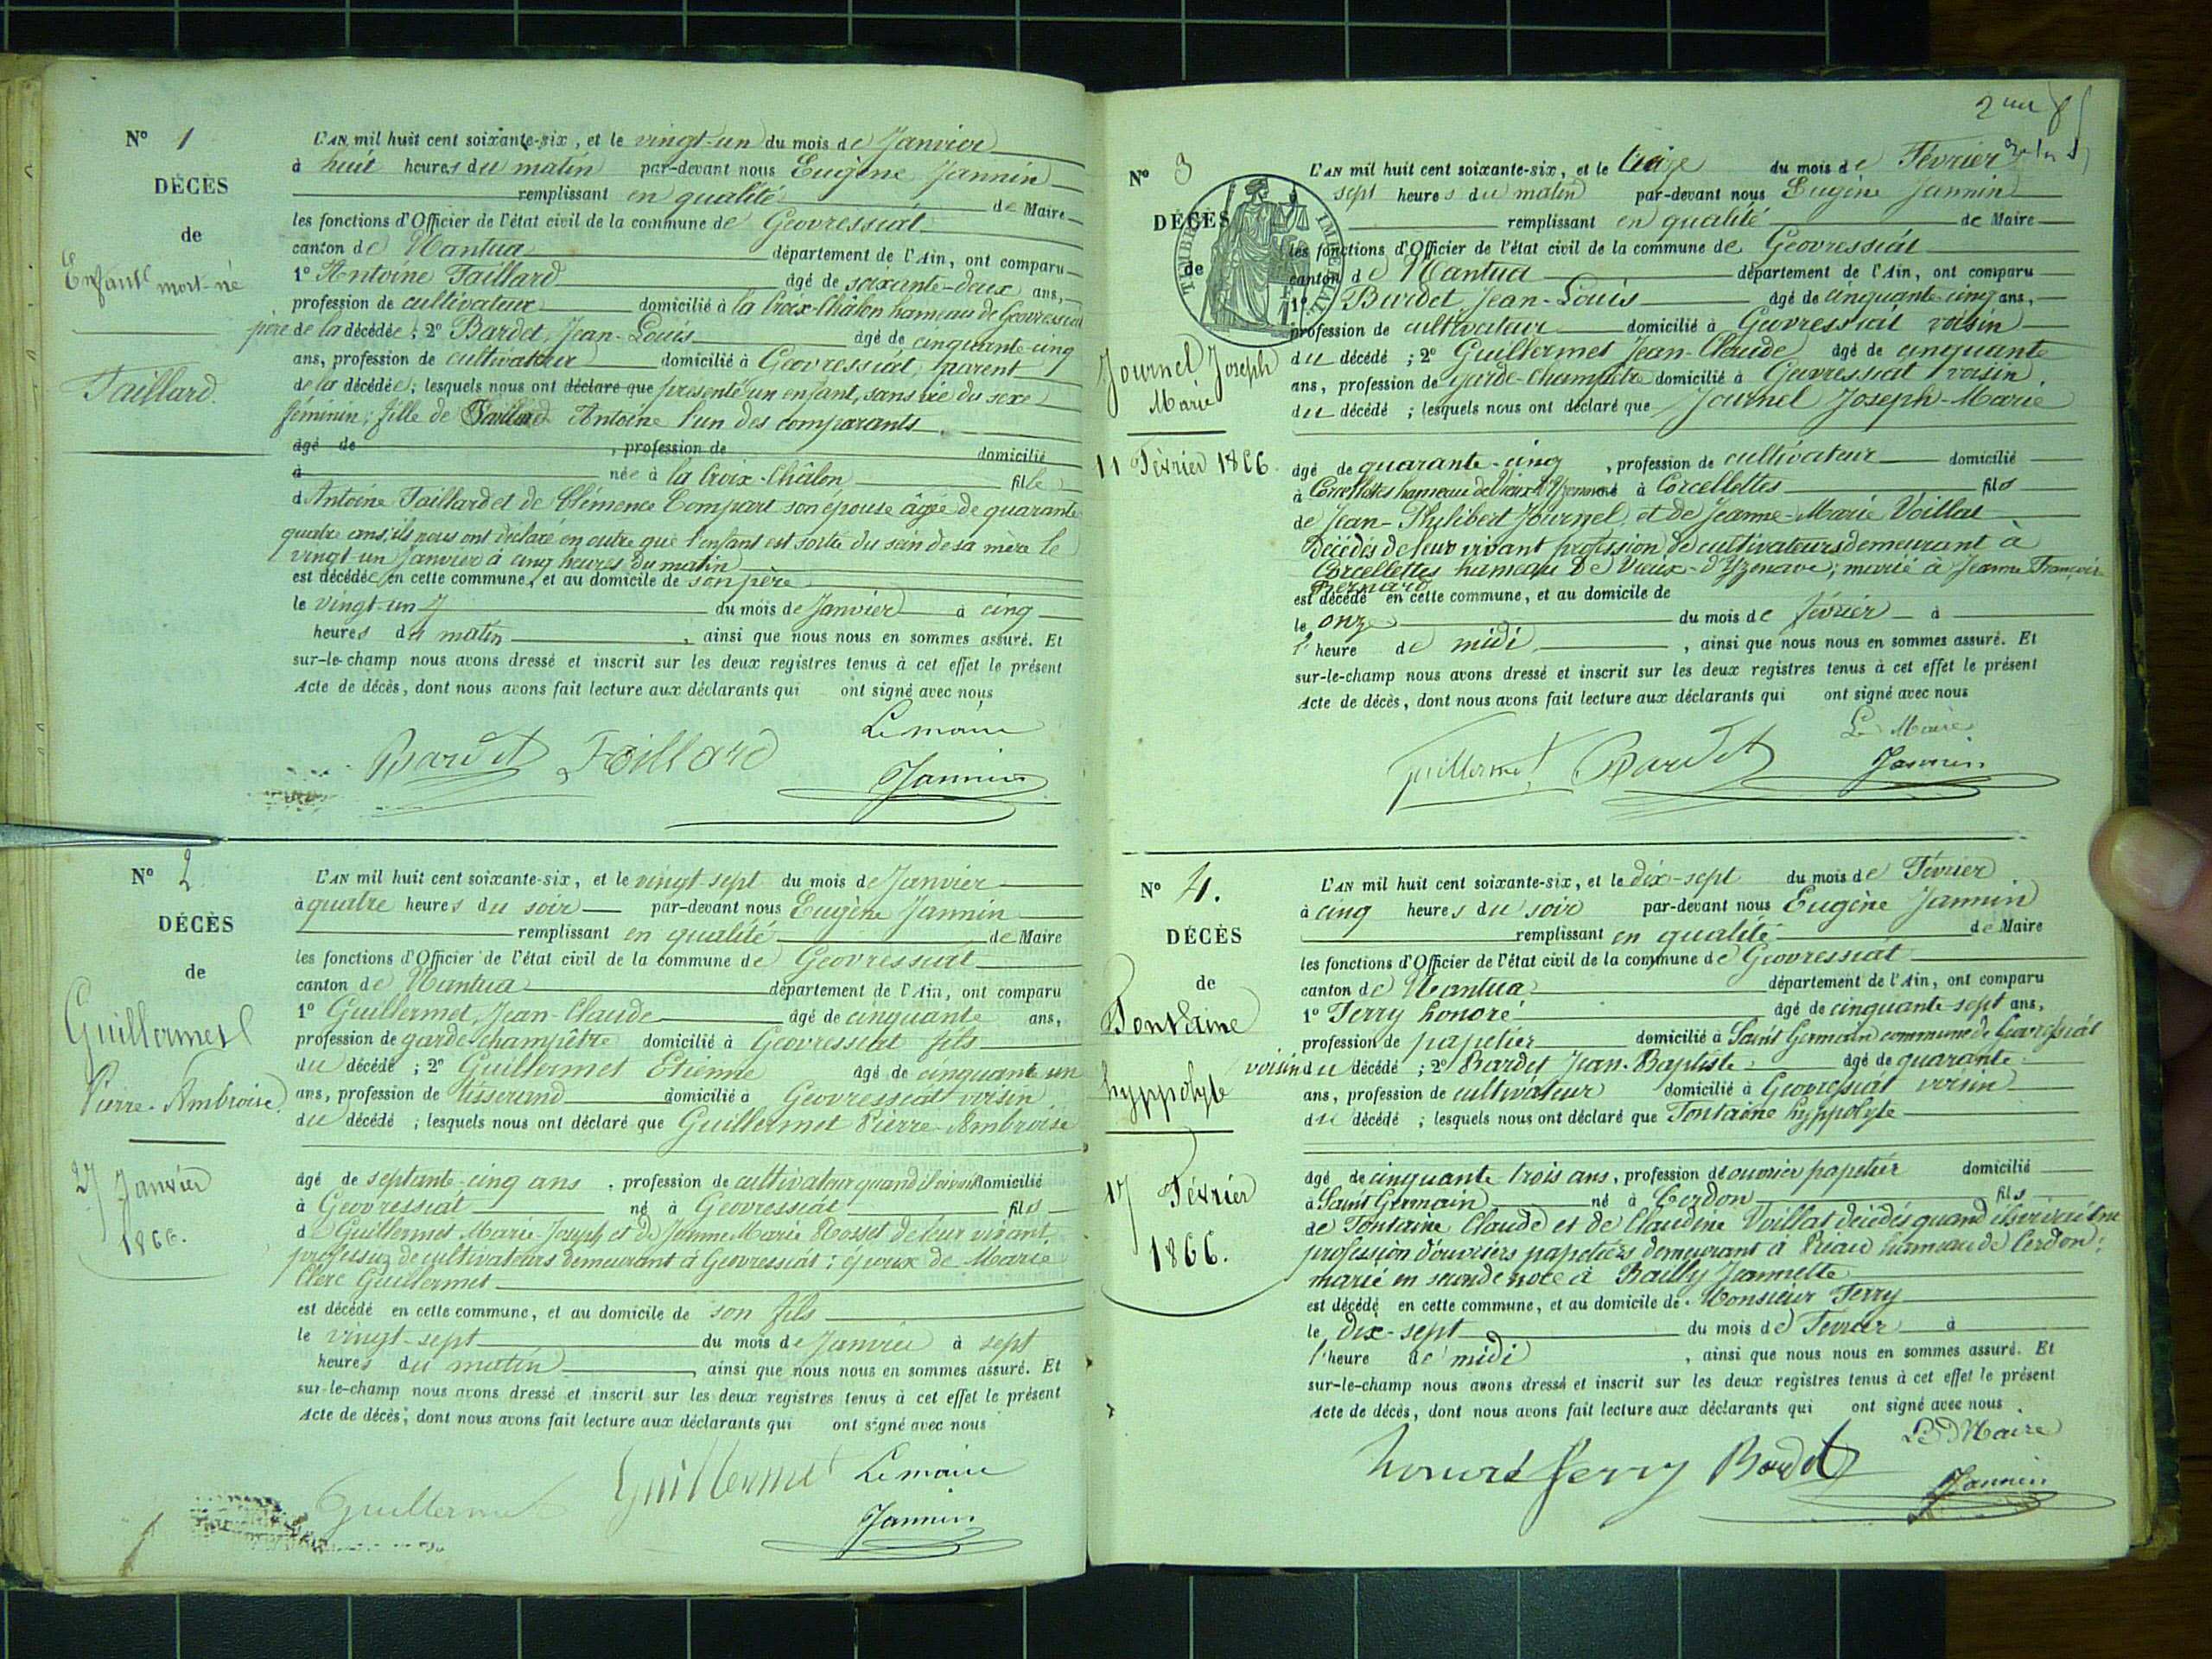 N° 1
DÉCÈS
de
Enfant mort-né
Taillard.
L'AN mil huit cent soixante-six, et le vingt-un du mois de Janvier
à huit heures du matin par-devant nous Eugène Jannin
remplissant en qualité de Maire
les fonctions d'Officier de l'état civil de la commune de Geovressiat
canton de Nantua département de l'Ain, ont comparu
1° Antoine Taillard âgé de soixante-deux ans,
profession de cultivateur domicilié à la Croix-Châlon hameau de Geovressiat
père de la décédée ; 2° Bardet, Jean-Louis âgé de cinquante-cinq
ans, profession de cultivateur domicilié à Geovressiat, parent
de la décédée ; lesquels nous ont déclaré que présenté un enfant, sans vie du sexe
féminin ; fille de Taillard Antoine l'un des comparants
âgé de , profession de domicilié
à née à la Croix-Châlon fille
d'Antoine Taillard et de Clémence Compart son épouse âgée de quarante
quatre ans, ils nous ont déclaré en outre que l'enfant est sortie du sein de sa mère le
vingt-un Janvier à cinq heures du matin
est décédée en cette commune, et au domicile de son père
le vingt-un du mois de Janvier à cinq
heures du matin , ainsi que nous nous en sommes assuré. Et
sur-le-champ nous avons dressé et inscrit sur les deux registres tenus à cet effet le présent
Acte de décès, dont nous avons fait lecture aux déclarants qui ont signé avec nous
Le maire
Bardet Taillard
Jannin
N° 2
DÉCÈS
de
Guillermet
Pierre-Ambroise
27 Janvier
1866.
L'AN mil huit cent soixante-six, et le vingt sept du mois de Janvier
à quatre heures du soir par-devant nous Eugène Jannin
remplissant en qualité de Maire
les fonctions d'Officier de l'état civil de la commune de Geovressiat
canton de Nantua département de l'Ain, ont comparu
1° Guillermet, Jean-Claude âgé de cinquante ans,
profession de garde-champêtre domicilié à Geovressiat fils
du décédé ; 2° Guillermet Etienne âgé de cinquante un
ans, profession de tisserand domicilié à Geovressiat voisin
du décédé ; lesquels nous ont déclaré que Guillermet Pierre-Ambroise
âgé de septante-cinq ans , profession de cultivateur quand il vivait domicilié
à Geovressiat né à Geovressiat fils
d Guillermet Marie-Joseph et de Jeanne Marie Rosset de leur vivant,
profession de cultivateurs demeurant à Geovressiat ; époux de Marie
Clerc Guillermet
est décédé en cette commune, et au domicile de son fils
le vingt-sept du mois de Janvier à sept
heures du matin , ainsi que nous nous en sommes assuré. Et
sur-le-champ nous avons dressé et inscrit sur les deux registres tenus à cet effet le présent
Acte de décès, dont nous avons fait lecture aux déclarants qui ont signé avec nous
Guillermet Guillermet Le maire
Jannin
N° 3
DÉCÈS
de
Journel Joseph
Marie
11 Février 1866.
L'AN mil huit cent soixante-six, et le treize du mois de Février
sept heures du matin par-devant nous Eugène Jannin
remplissant en qualité de Maire
les fonctions d'Officier de l'état civil de la commune de Geovressiat
canton de Nantua département de l'Ain, ont comparu
1° Bardet, Jean-Louis âgé de cinquante-cinq ans,
profession de cultivateur domicilié à Geovressiat voisin
du décédé ; 2° Guillermet Jean-Claude âgé de cinquante
ans, profession de garde-champêtre domicilié à Geovressiat voisin
du décédé ; lesquels nous ont déclaré que Journel Joseph-Marie
âgé de quarante-cinq , profession de cultivateur domicilié
à Corcellettes hameau de Vieux d'Yzenave né à Corcellettes fils
de Jean-Philibert Journel, et de Jeanne-Marie Voillat
décédés de leur vivant profession de cultivateurs demeurant à
Corcellettes hameau de Vieux-d'Yzenave ; marié à Jeanne Françoise
Bernard
est décédé en cette commune, et au domicile de
le onze du mois de février à
l'heure de midi , ainsi que nous nous en sommes assuré. Et
sur-le-champ nous avons dressé et inscrit sur les deux registres tenus à cet effet le présent
Acte de décès, dont nous avons fait lecture aux déclarants qui ont signé avec nous
Le Maire
Guillermet Bardet Jannin
N° 4.
DÉCÈS
de
Fontaine
hyppolyte
17 Février
1866.
L'AN mil huit cent soixante-six, et le dix-sept du mois de Février
à cinq heures du soir par-devant nous Eugène Jannin
remplissant en qualité de Maire
les fonctions d'Officier de l'état civil de la commune de Geovressiat
canton de Nantua département de l'Ain, ont comparu
1° Ferry honoré âgé de cinquante-sept ans,
profession de papetier domicilié à Saint Germain commune de Geovressiat
voisin du décédé ; 2° Bardet Jean-Baptiste âgé de quarante
ans, profession de cultivateur domicilié à Geovressiat voisin
du décédé ; lesquels nous ont déclaré que Fontaine hyppolyte
âgé de cinquante trois ans, profession de ouvrier papetier domicilié
à Saint Germain né à Cerdon fils
de Fontaine Claude et de Claudine Voillat décédés quand ils vivaient
profession d'ouvriers papetiers demeurant à Préau hameau de Cerdon ;
marié en seconde noce à Bailly Jeannette
est décédé en cette commune, et au domicile de Monsieur Ferry
le dix-sept du mois de Février à
l'heure de midi , ainsi que nous nous en sommes assuré. Et
sur-le-champ nous avons dressé et inscrit sur les deux registres tenus à cet effet le présent
Acte de décès, dont nous avons fait lecture aux déclarants qui ont signé avec nous
Le Maire
honoré ferry Bardet
Jannin